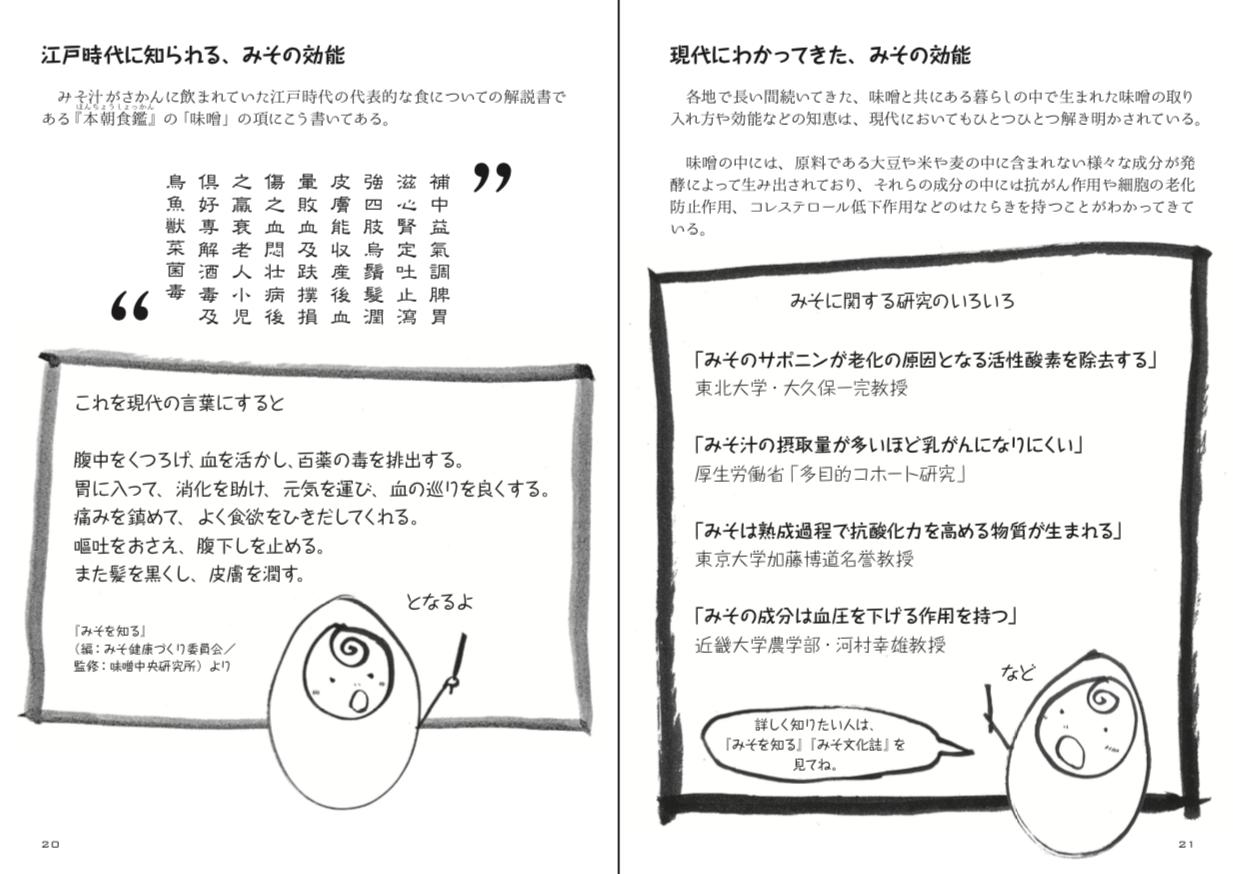 江戸時代に知られる、みその効能
みそ汁がさかんに飲まれていた江戸時代の代表的な食についての解説書で
ほんちょうしょっかん
ある『本朝食鑑』の「味噌」の項にこう書いてある。
”
補中益氣調脾胃
滋心腎定吐止瀉
強四肢烏鬚髪潤
皮膚能収産後血
暈敗血及趺撲損
傷之血悶壮病後
之羸衰老人小児
倶好専解酒毒及
鳥魚獣菜菌毒
“
これを現代の言葉にすると
腹中をくつろげ、血を活かし、百薬の毒を排出する。
胃に入って、消化を助け、元気を運び、血の巡りを良くする。
痛みを鎮めて、よく食欲をひきだしてくれる。
嘔吐をおさえ、腹下しを止める。
また髪を黒くし、皮膚を潤す。
となるよ
『みそを知る』
（編：みそ健康づくり委員会／
監修：味噌中央研究所）より
20
現代にわかってきた、みその効能
各地で長い間続いてきた、味噌と共にある暮らしの中で生まれた味噌の取り
入れ方や効能などの知恵は、現代においてもひとつひとつ解き明かされている。
味噌の中には、原料である大豆や米や麦の中に含まれない様々な成分が発
酵によって生み出されており、それらの成分の中には抗がん作用や細胞の老化
防止作用、コレステロール低下作用などのはたらきを持つことがわかってきて
いる。
みそに関する研究のいろいろ
「みそのサポニンが老化の原因となる活性酸素を除去する」
東北大学・大久保一完教授
「みそ汁の摂取量が多いほど乳がんになりにくい」
厚生労働省「多目的コホート研究」
「みそは熟成過程で抗酸化力を高める物質が生まれる」
東京大学加藤博道名誉教授
「みその成分は血圧を下げる作用を持つ」
近畿大学農学部・河村幸雄教授
など
詳しく知りたい人は、
『みそを知る』『みそ文化誌』を
見てね。
21